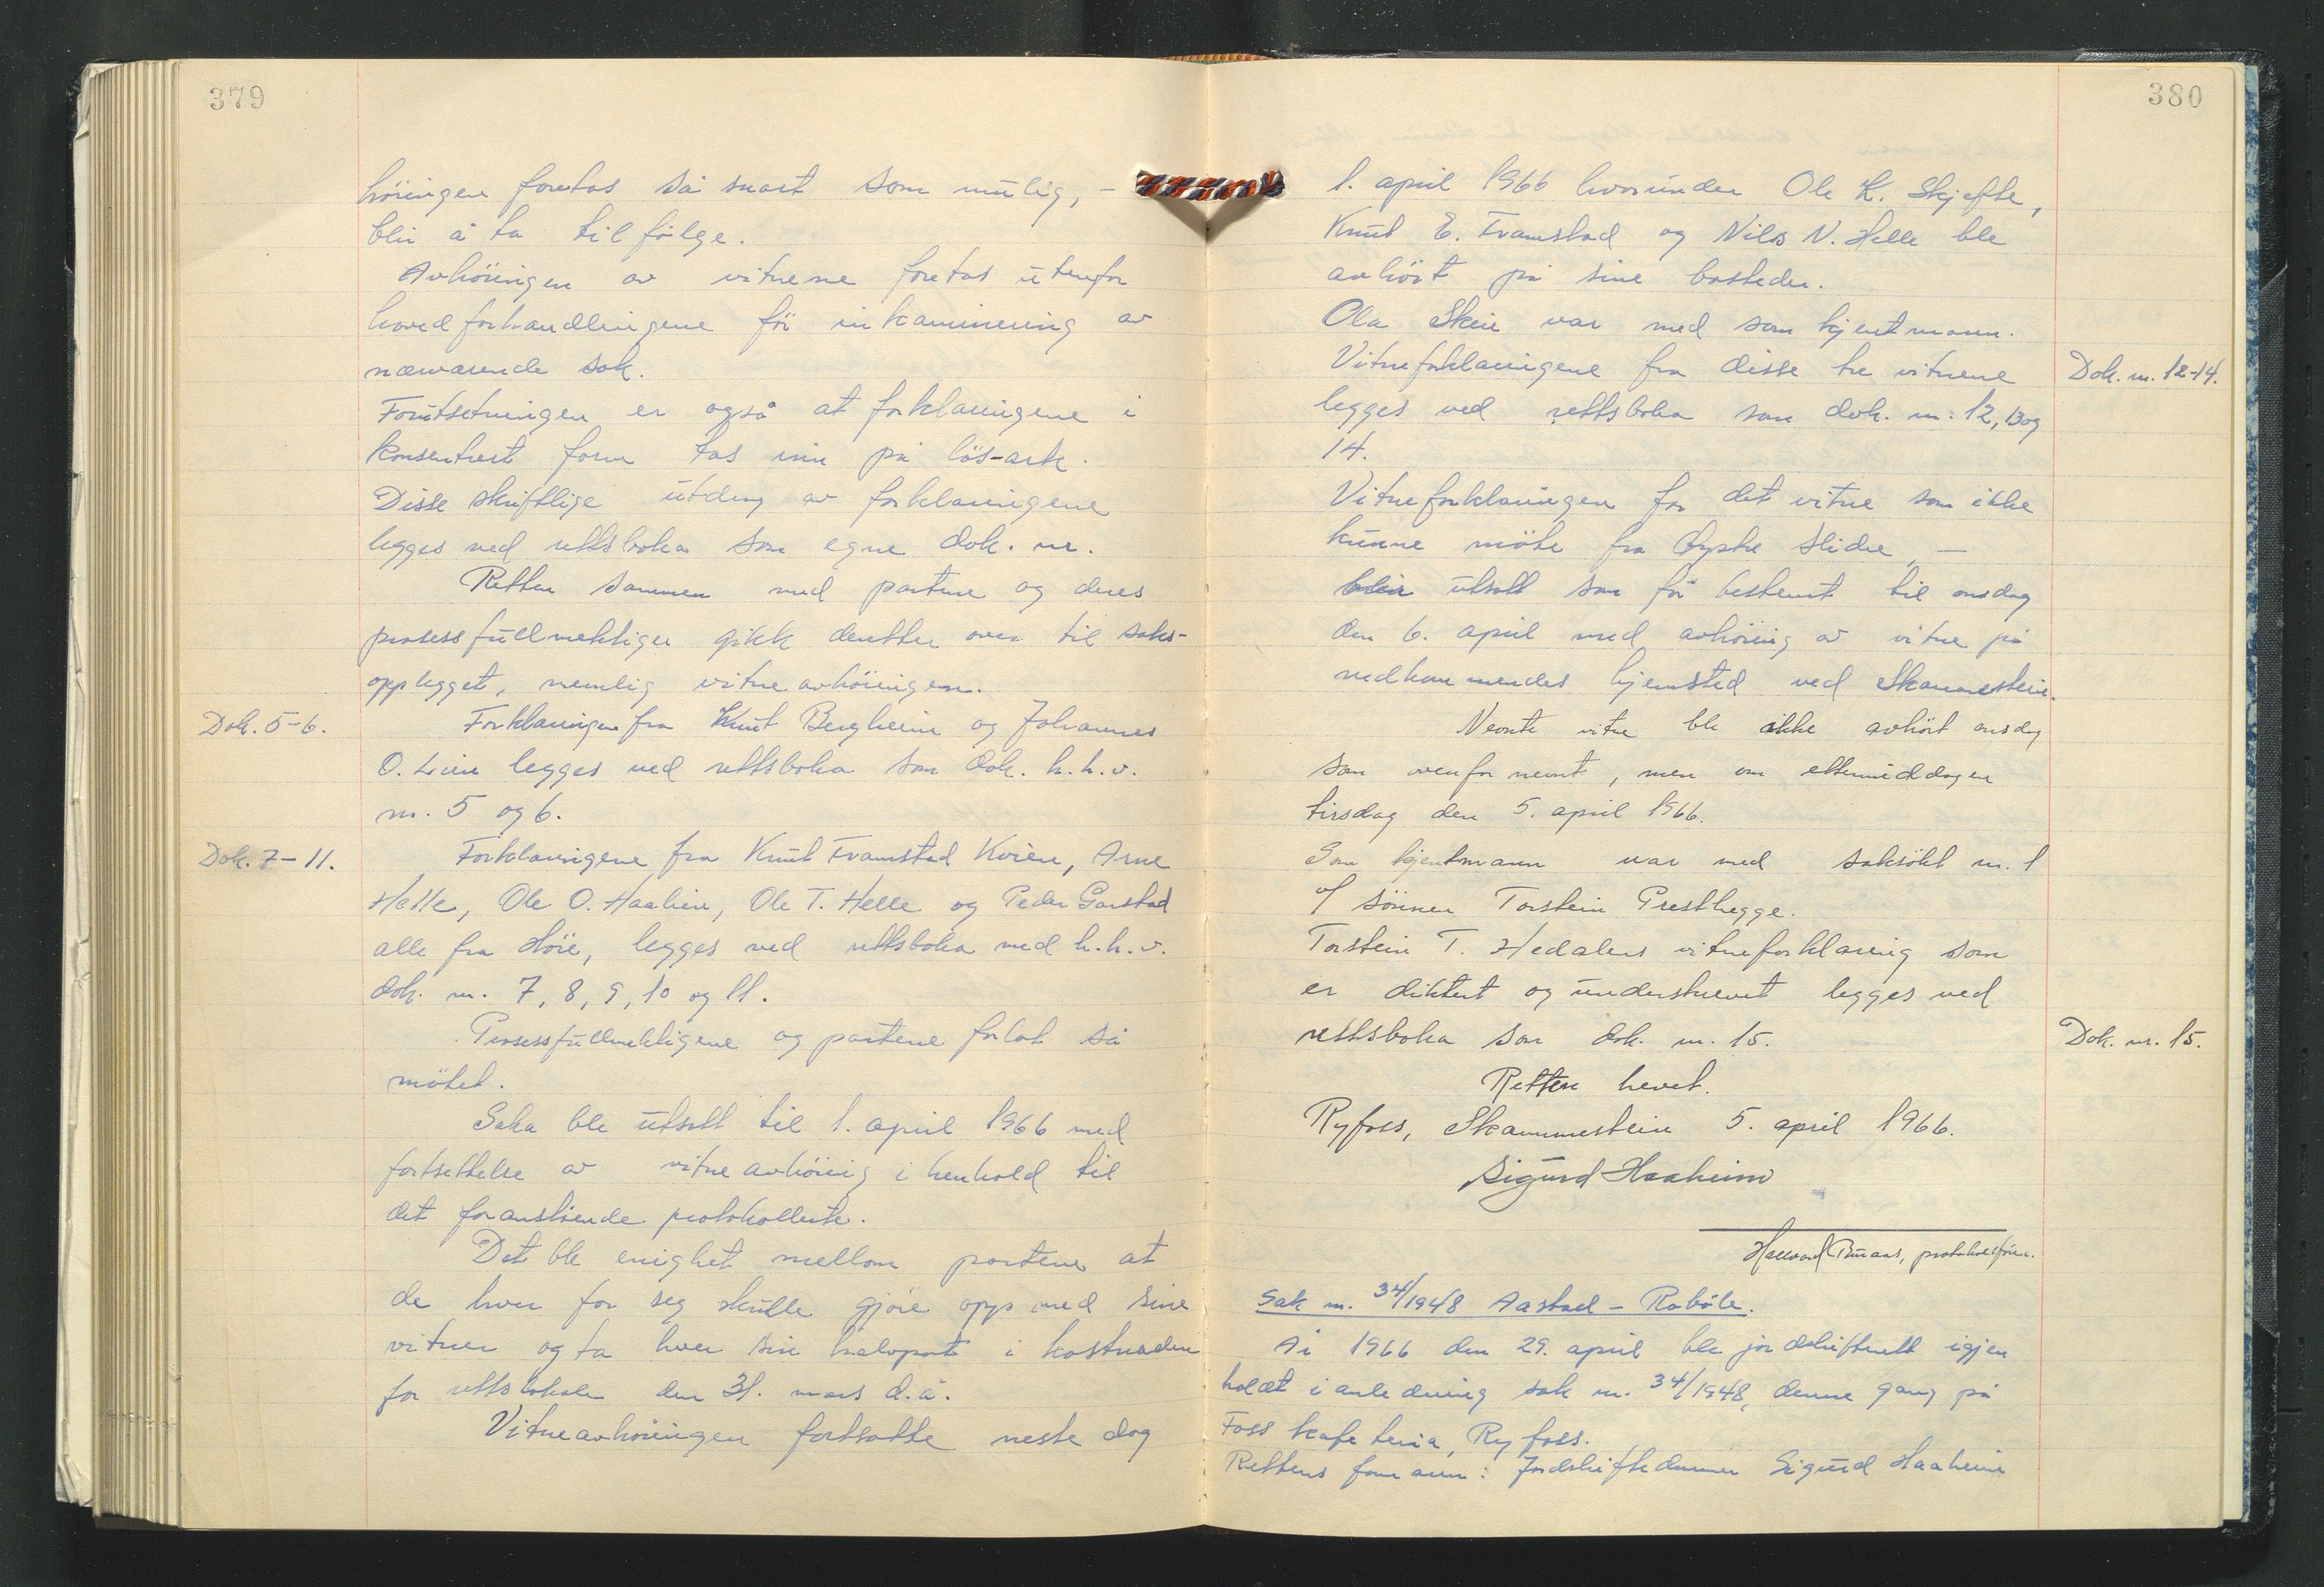 379
höringen foretas så snart som mulig, -
blir å ta til fölge.
Avhöringen av vitnene foretas utenfor
hovedforhandlingene för inkaminering av
nærværende sak.
Forutsetningen er også at forklaringene i
konsentrert form tas inn på lös-ark.
Disse skriftlige utdrag av forklaringene
legges ved rettsboka som egne dok. nr.
Retten sammen med partene og deres
prosessfullmektiger gikk deretter over til saks-
opplegget, nemlig vitneavhöringen.
Dok. 5-6.
Forklaringen fra Knut Bergheim og Johannes
O. Lien legges ved rettsboka som dok. h.h.v.
nr. 5 og 6.
Dok. 7-11.
Forklaringene fra Knut Framstad Kvien, Arne
Helle, Ole O. Haalien, Ole T. Helle og Peder Garstad
alle fra Höre, legges ved rettsboka med h.h.v.
dok. nr. 7, 8, 9, 10 og 11.
Prosessfullmektigene og partene forlot så
mötet.
Saka ble utsatt til 1. april 1966 med
fortsettelse av vitneavhöring i henhold til
det foranstående protokollerte.
Det ble enighet mellom partene at
de hver for seg skulle gjöre opp med sine
vitner og ta hver sin halvpart i kostnaden
for rettslokale den 31. mars d.å.
Vitneavhöringen fortsatte neste dag
380
1. april 1966 hvorunder Ole K. Skjefte,
Knut E. Framstad og Nils N. Helle ble
avhört på sine bosteder.
Ola Skeie var med som kjentmann.
Vitneforklaringene fra disse tre vitnene
Dok. nr. 12-14.
legges ved rettsboka som dok. nr: 12, 13 og
14.
Vitneforklaringen for det vitne som ikke
kunne möte fra Öystre Slidre, -
blir utsatt som för bestemt til onsdag
den 6. april med avhöring av vitne på
vedkommendes hjemsted ved Skammestein.
Nevnte vitne ble ikke avhört onsdag
som ovenfor nevnt, men om ettermiddagen
tirsdag den 5. april 1966.
Som kjentmann var med saksökt nr. 1
v/ sönnen Torstein Presthegge.
Torstein T. Hedalens vitneforklaring som
er diktert og underskrevet legges ved
rettsboka som dok. nr. 15.
Dok. nr. 15.
Retten hevet.
Ryfoss, Skammestein 5. april 1966.
Sigurd Haaheim
Hallvard, protokollförer.
Sak nr. 34/1948 Aastad - Raböle.
År 1966 den 29. april ble jordskifterett igjen
holdt i anledning sak nr. 34/1948, denne gang på
Foss kafeteria, Ryfoss.
Rettens formann: Jordskiftedommer Sigurd Haaheim